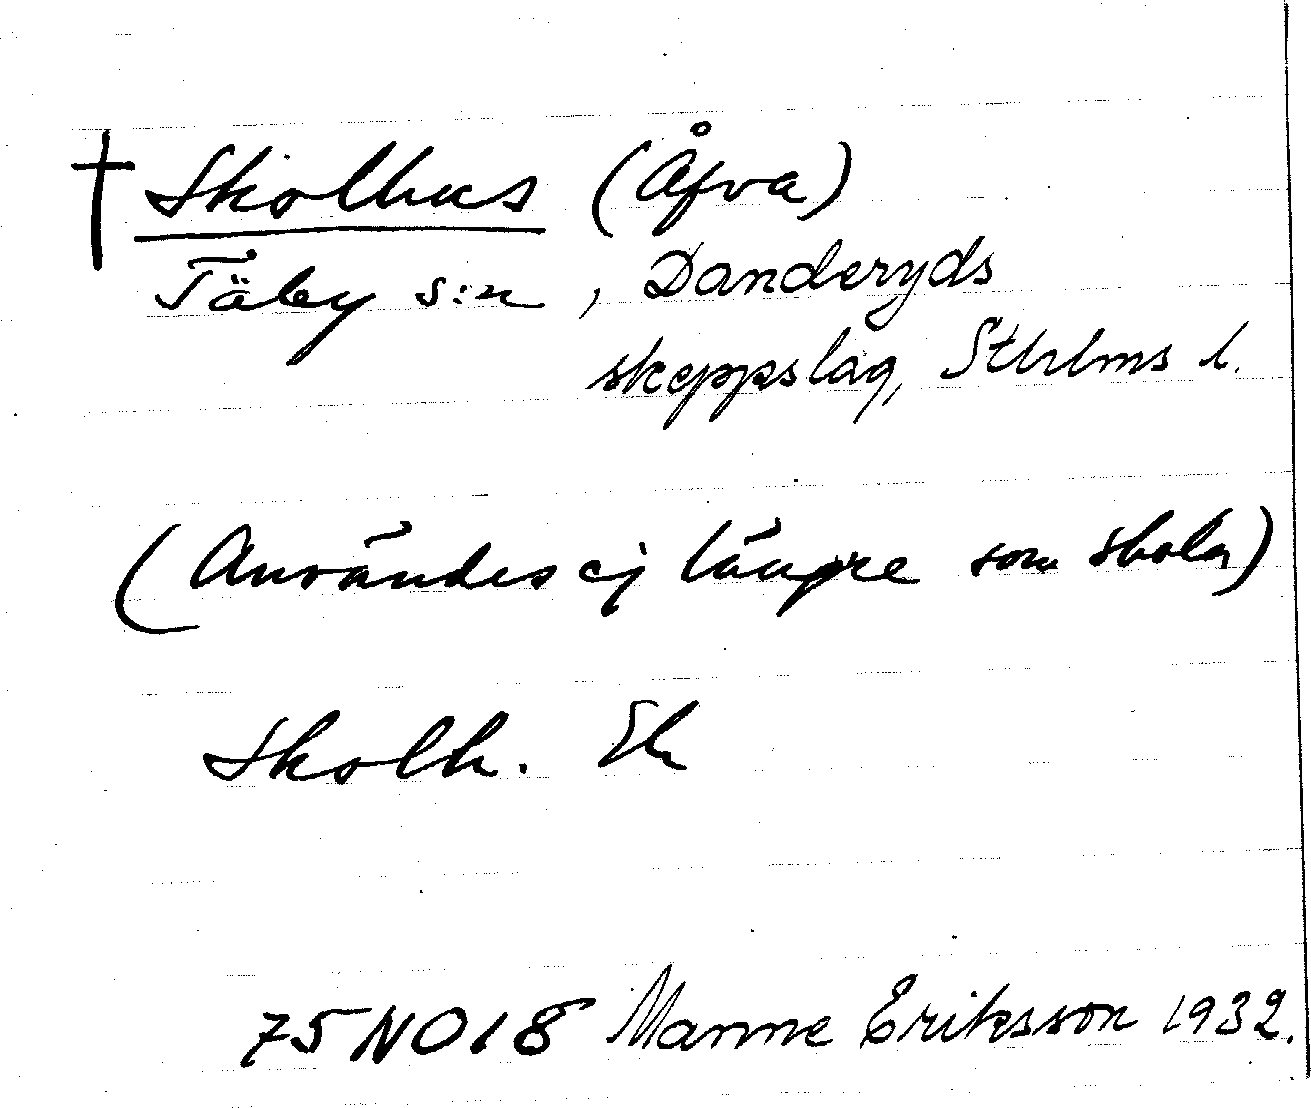 † Skolhus (Åfva)
Täby s:n, Danderyds
skeppslag, Sthlms l.
(Användes ej längre som skola)
Skolh. Ek
75NO18 Manne Eriksson 1932.